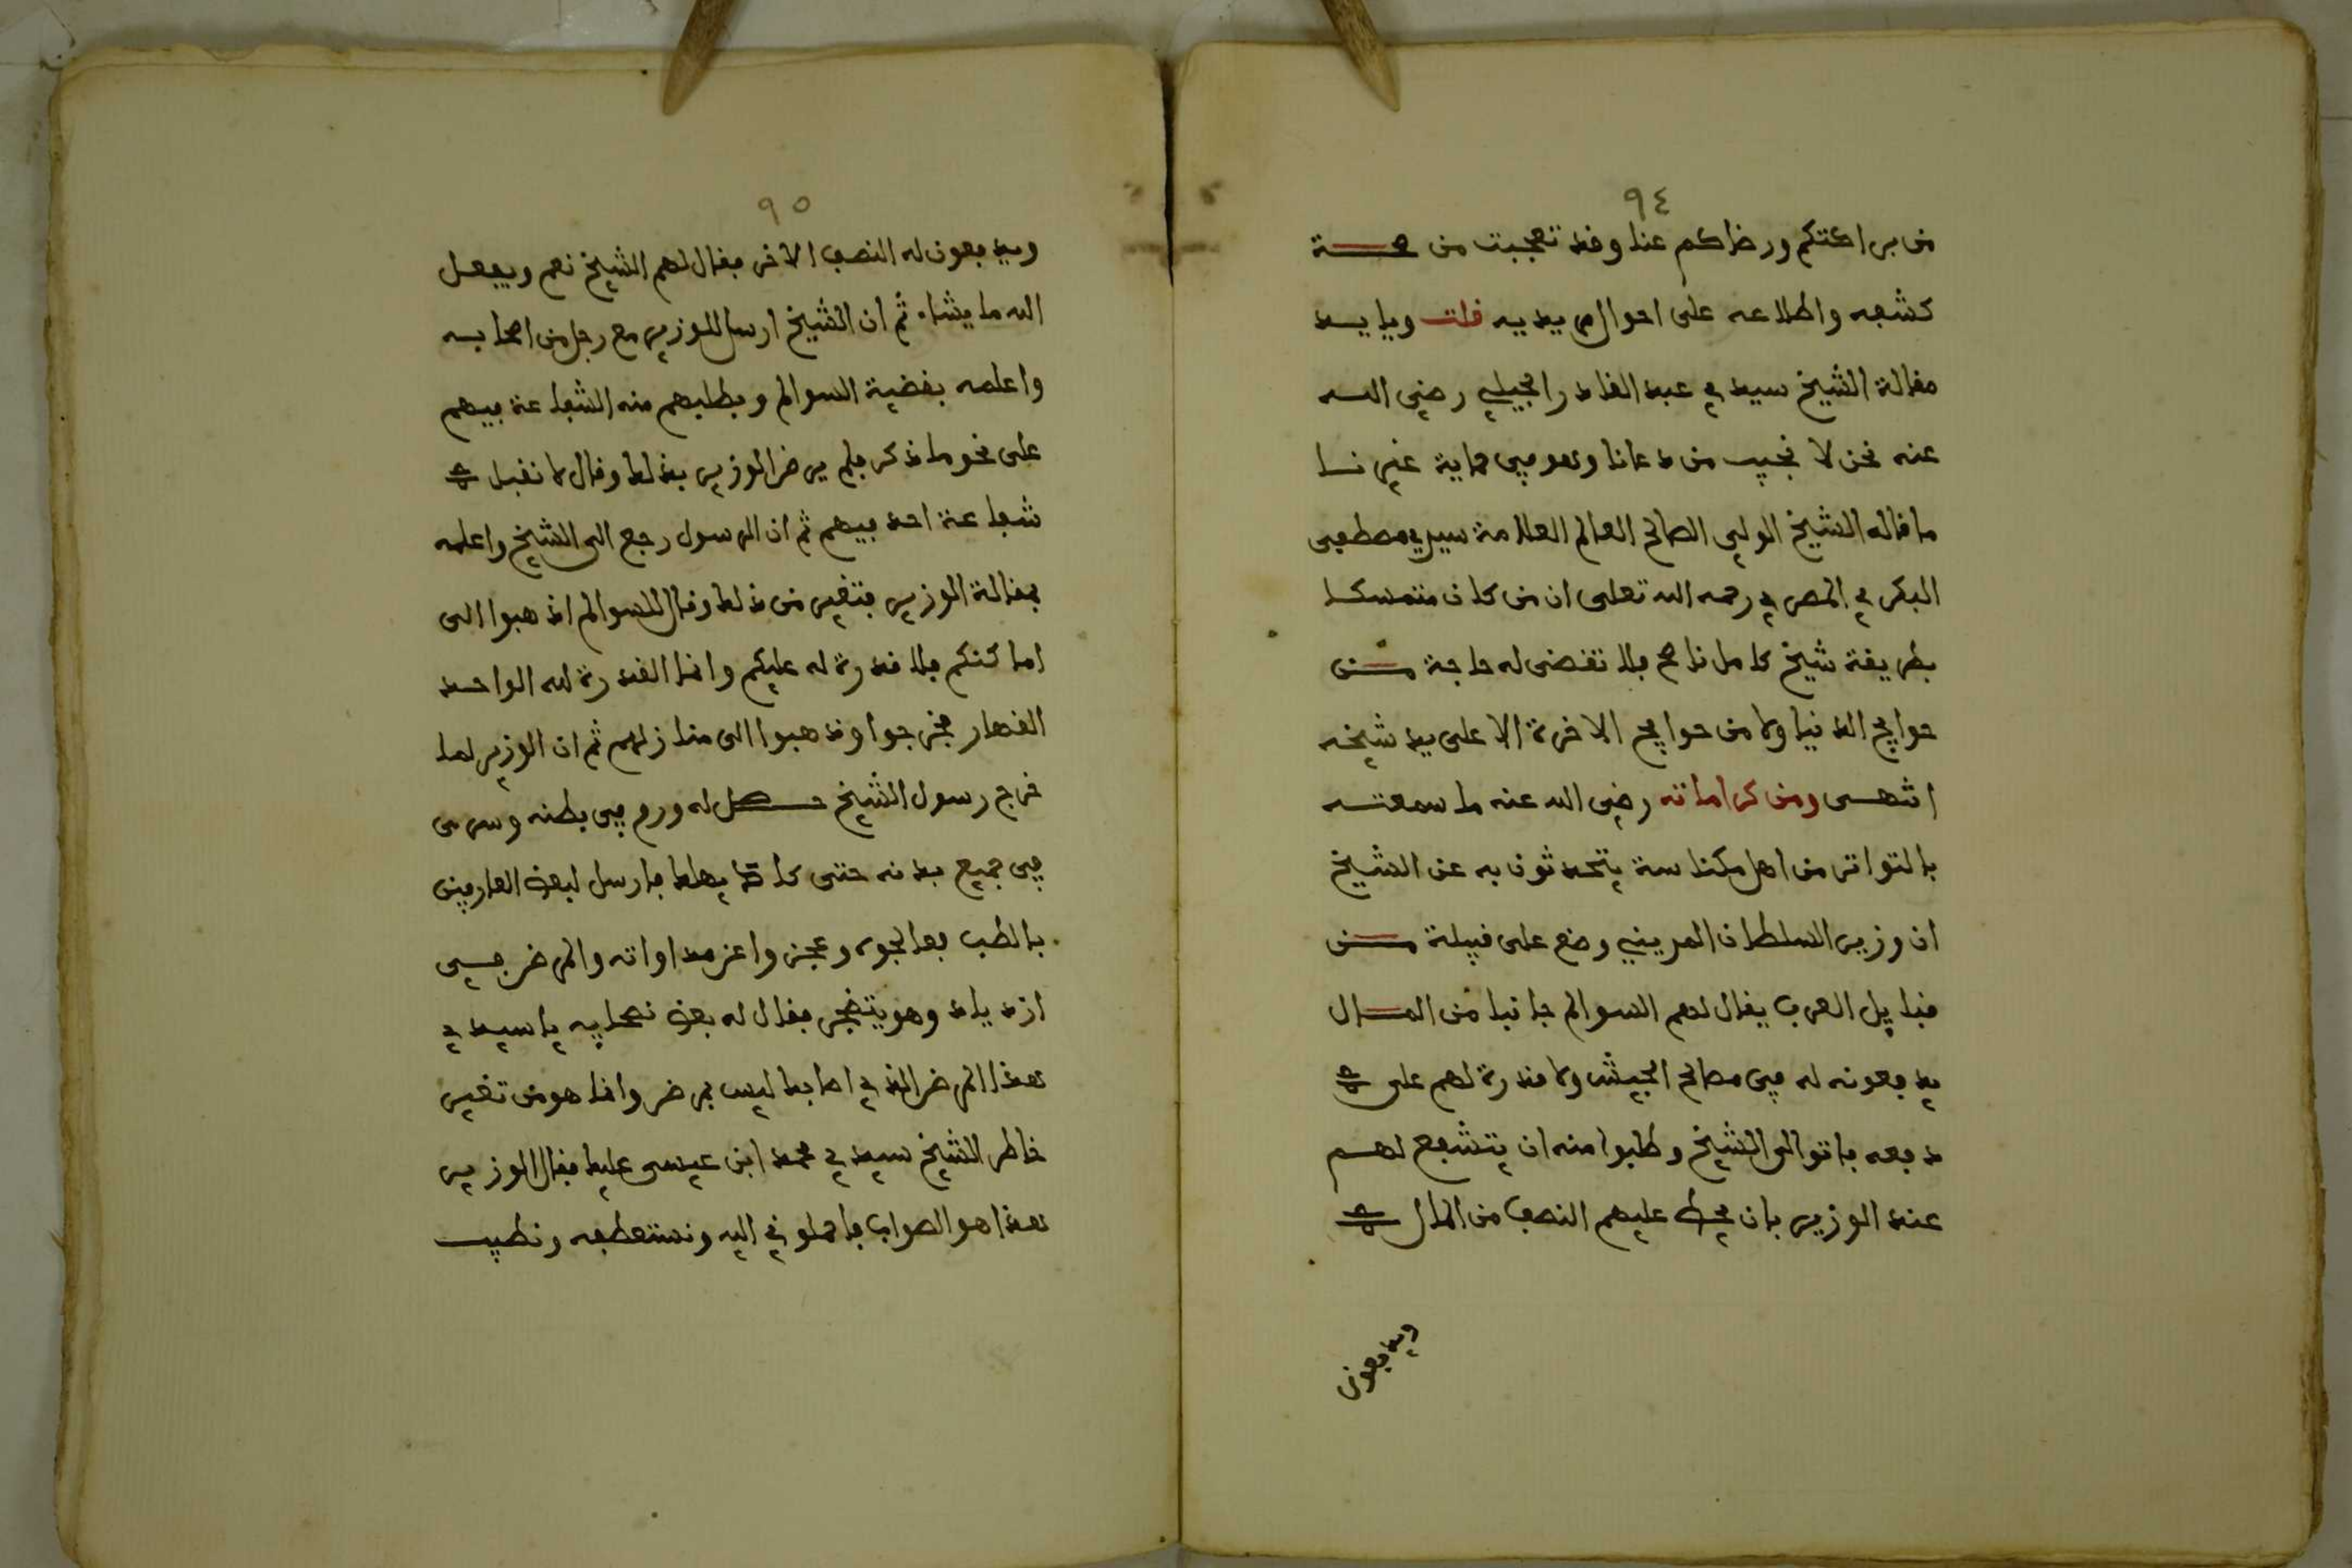 ٩٤
من براكتكم ورضاكم عنا وقد تعجبت من صحة
كشفه واطلاعه على احوال مريديه قلت ويايد
مقالة الشيخ سيدي عبد القادر الجيلي رضي الله
عنه نحن لا نجيب من دعانا وهو في حماية غيرنا
ما قاله الشيخ الولي الصالح العالم العلامة سيدي مصطفى
البكري المصري رحمه الله تعلى ان من كان متمسكا
بطريقة شيخ كامل ناصح فلا تقضى له حاجة من
حوايج الدنيا ولا من حوايج الاخرة الا على يد شيخه
انتهى ومن كراماته رضي الله عنه ما سمعته
بالتواتر من اهل مكناسة يتحدثون به عن الشيخ
ان وزير السلطان المريني وضع على قبيلة من
قبايل العرب يقال لهم السوالم جانبا من المال
يدفعونه له في مصالح الجيش ولا قدرة لهم على
دفعه فاتوا الى الشيخ وطلبوا منه ان يتشفع لهم
عند الوزير بان يحط عليهم النصف من المال
ويدفعون
٩٥
ويدفعون له النصف الاخر فقال لهم الشيخ نعم ويفعل
الله ما يشاء ثم ان الشيخ ارسل للوزير مع رجل من اصحابه
واعلمه بقضية السوالم وبطلبهم منه الشفاعة فيهم
على نحو ما ذكر فلم يرض الوزير بذلك وقال لا نقبل
شفاعة احد فيهم ثم ان الرسول رجع الى الشيخ واعلمه
بمقالة الوزير فتغير من ذلك وقال للسوالم اذهبوا الى
اماكنكم فلا قدرة له عليكم وانما القدرة لله الواحد
القهار فخرجوا وذهبوا الى منازلهم ثم ان الوزير لما
خرج رسول الشيخ حصل له ورم في بطنه وسرى
في جميع بدنه حتى كاد يهلك فارسل لبعض العارفين
بالطب فعالجوه وعجزوا عن مداواته والمرض في
ازدياد وهو يتضجر فقال له بعض نصحايه يا سيدي
هذا المرض الذي اصابك ليس بمرض وانما هو من تغير
خاطر الشيخ سيدي محمد ابن عيسى عليك فقال الوزير
هذا هو الصواب فاحملوني اليه ونستعطفه ونطيب